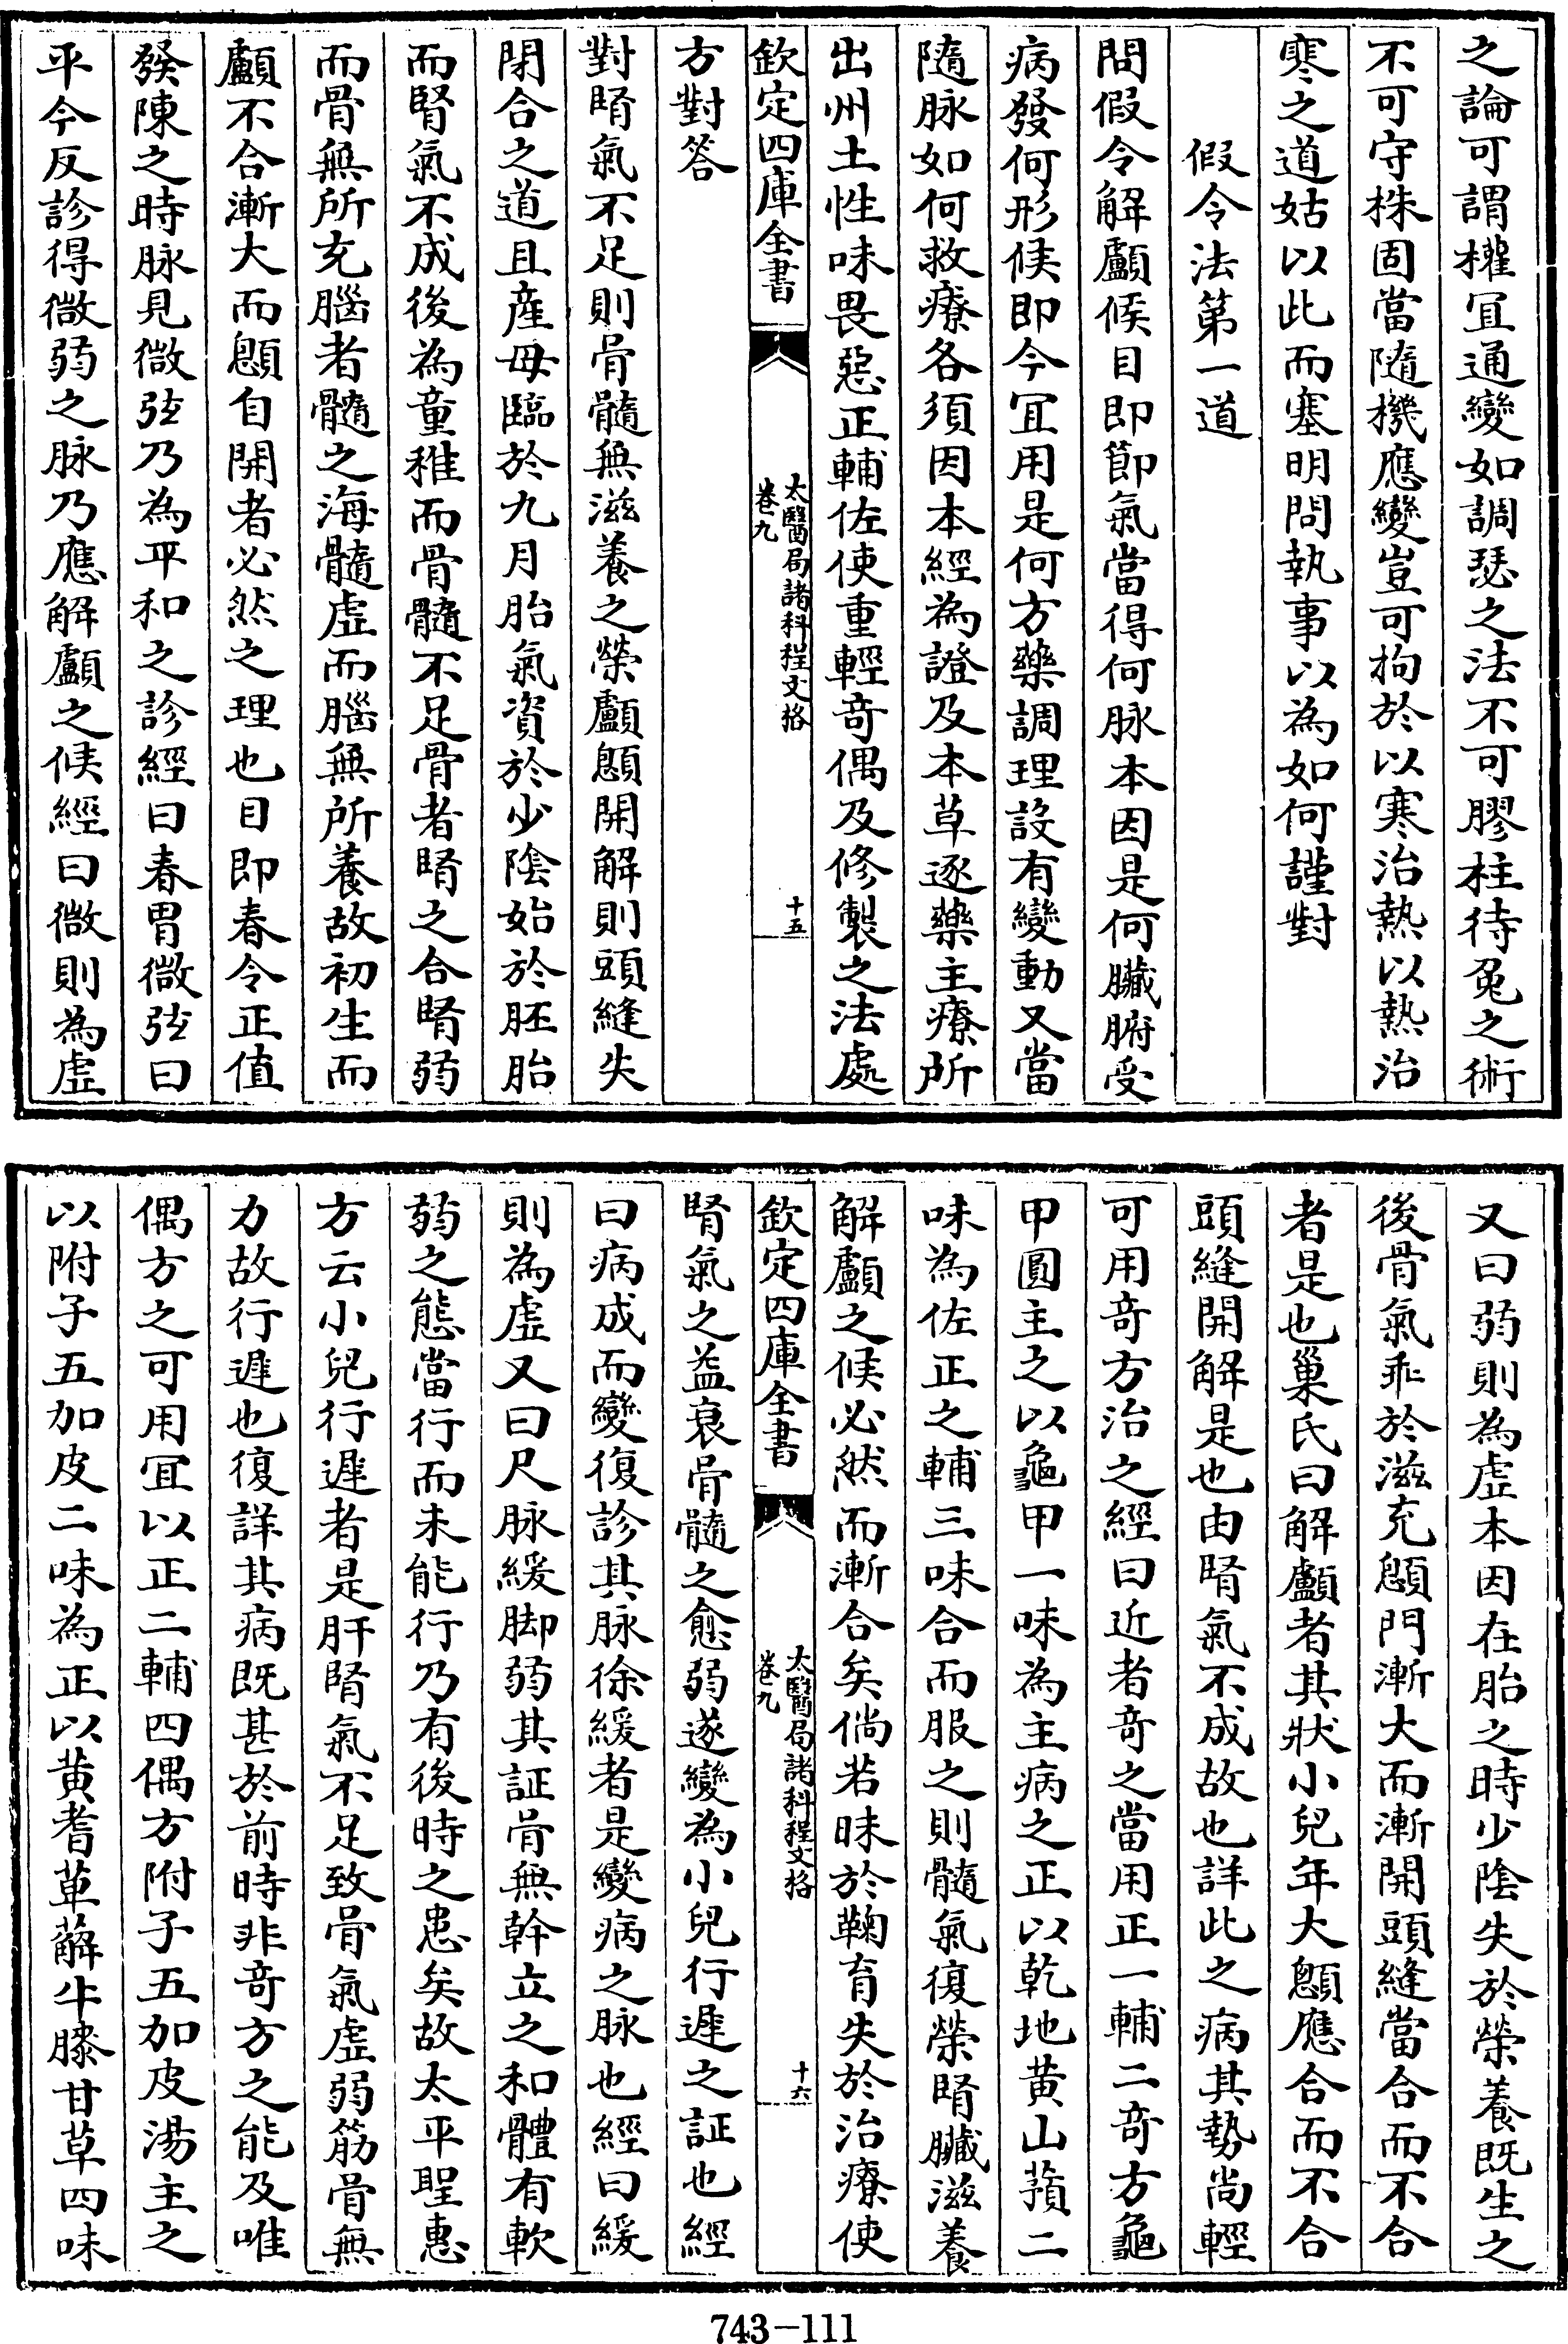 之論可謂權宜通變如調瑟之法不可膠柱待兔之術
不可守株固當隨機應變豈可拘於以寒治熱以熱治
寒之道姑以此而塞明問執事以為如何謹對
假令法第一道
問假令解顱候目即節氣當得何脉本因是何臟腑受
病發何形候即今宜用是何方藥調理設有變動又當
隨脉如何救療各須因本經為證及本草逐藥主療所
出州土性味畏惡正輔佐使重輕竒偶及修製之法處
欽定四庫全書
太醫局諸科程文格
卷九
十五
方對答
對腎氣不足則骨髓無滋養之榮顱顖開解則頭縫失
閉合之道且産母臨於九月胎氣資於少陰始於胚胎
而腎氣不成後為童稚而骨髓不足骨者腎之合腎弱
而骨無所充腦者髓之海髓虚而腦無所養故初生而
顱不合漸大而顖自開者必然之理也目即春令正值
發陳之時脉見微弦乃為平和之診經曰春胃微弦曰
平今反診得微弱之脉乃應解顱之候經曰微則為虚
又曰弱則為虚本因在胎之時少陰失於榮養既生之
後骨氣乖於滋充顖門漸大而漸開頭縫當合而不合
者是也巢氏曰解顱者其狀小兒年大顖應合而不合
頭縫開解是也由腎氣不成故也詳此之病其勢尚輕
可用竒方治之經曰近者竒之當用正一輔二竒方龜
甲圓主之以龜甲一味為主病之正以乾地黄山蕷二
味為佐正之輔三味合而服之則髓氣復榮腎臟滋養
解顱之候必然而漸合矣倘若昧於鞠育失於治療使
欽定四庫全書
太醫局諸科程文格
卷九
十六
腎氣之益衰骨髓之愈弱遂變為小兒行遲之証也經
曰病成而變復診其脉徐緩者是變病之脉也經曰緩
則為虚又曰尺脉緩脚弱其証骨無幹立之和體有軟
弱之態當行而未能行乃有後時之患矣故太平聖惠
方云小兒行遲者是肝腎氣不足致骨氣虚弱筋骨無
力故行遲也復詳其病既甚於前時非竒方之能及唯
偶方之可用宜以正二輔四偶方附子五加皮湯主之
以附子五加皮二味為正以黄耆萆薢牛膝甘草四味
743-111